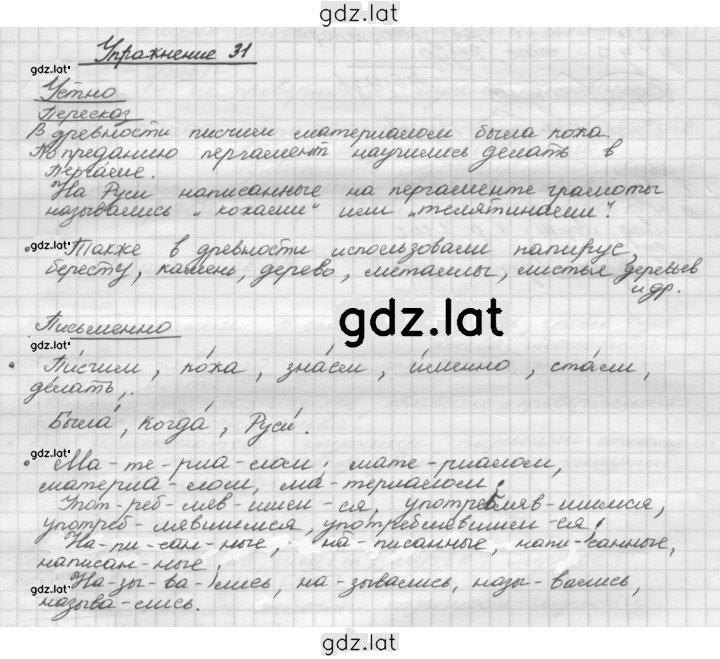 gdz.lat
Упражнение 31
gdz.lat
Устно
Пересказ
В древности писчим материалом была кожа.
По преданию пергамент научились делать в
Пергаме.
gdz.lat
На Руси написанные на пергаменте грамоты
назывались „кожами“ или „телятинами“.
• Также в древности использовали папирус,
gdz.lat
бересту, камень, дерево, металлы, листья деревьев
и др.
gdz.lat
Письменно
gdz.lat
• Писчим, кожа, знаем, именно, стали,
делать,.
gdz.lat
Была, когда, Руси.
gdz.lat
• Ма-те-риа-лом; мате-риалом,
материа-лом, ма-териалом;
gdz.lat
Упот-реб-ляв-шием-ся, употребляв-шимся,
употреб-лявшимся, употреблявшием-ся;
gdz.lat
На-пи-сан-ные, на-писанные, напи-санные,
написан-ные;
gdz.lat
На-зы-ва-лись, на-зывались, назы-вались,
называ-лись.
gdz.lat